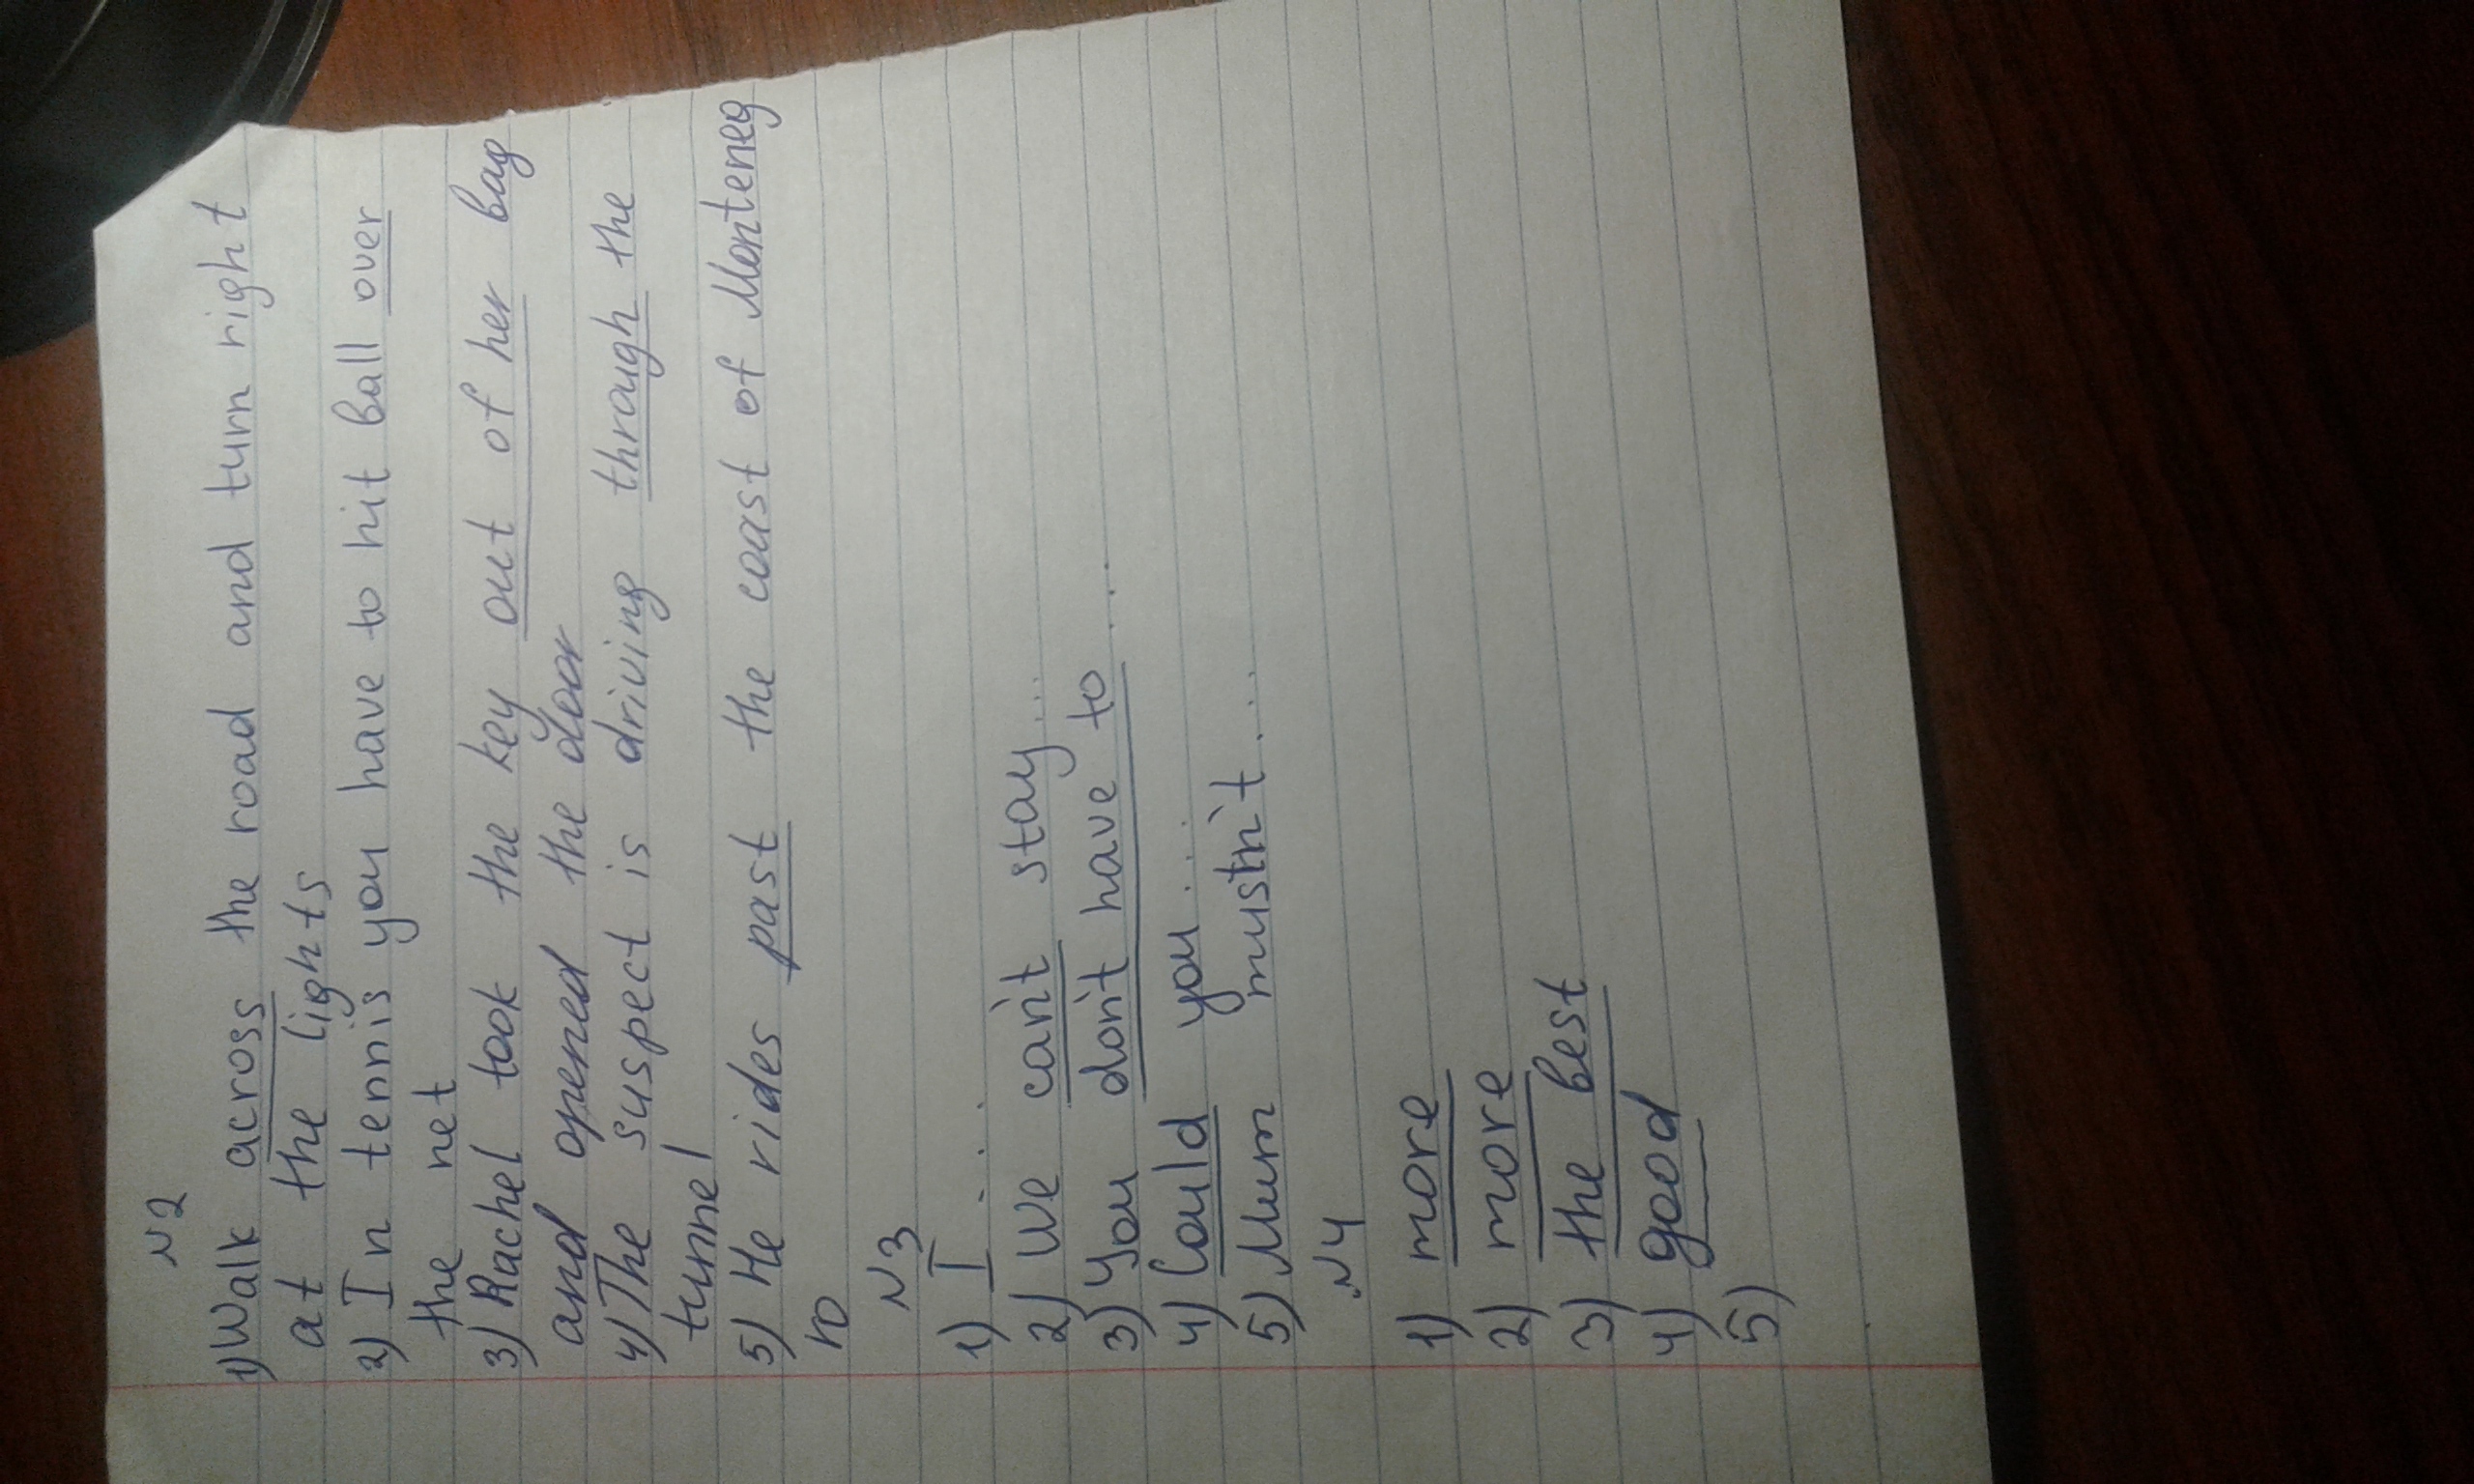 N2
1) Walk across the road and turn right
at the lights
2) In tennis you have to hit ball over
the net
3) Rachel took the key out of her bag
and opened the door
4) The suspect is driving through the
tunnel
5) He rides past the coast of Monteneg
ro
N3
1) I . . . .
2) We can't stay...
3) You don't have to . . . .
4) Could you ....
5) Mum mustn't ....
N4
1) more
2) more
3) the best
4) good
5)